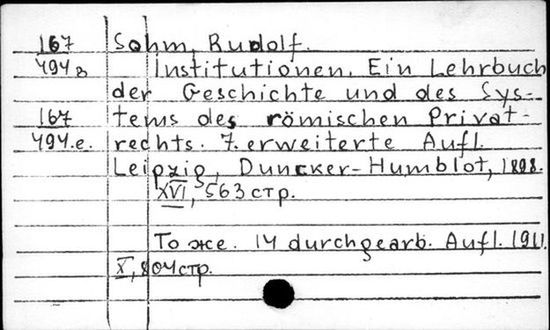 167 Sohm, Rudolf.
494 в Institutionen. Ein Lehrbuch
der Geschichte und des Sys-
167 tems des römischen Privat-
494.e. rechts. 7. erweiterte Aufl.
Leipzig, Duncker-Humblot, 1898.
XVI, 563 стр.
То же. 14 durchgearb. Aufl. 1911.
X, 804 стр.